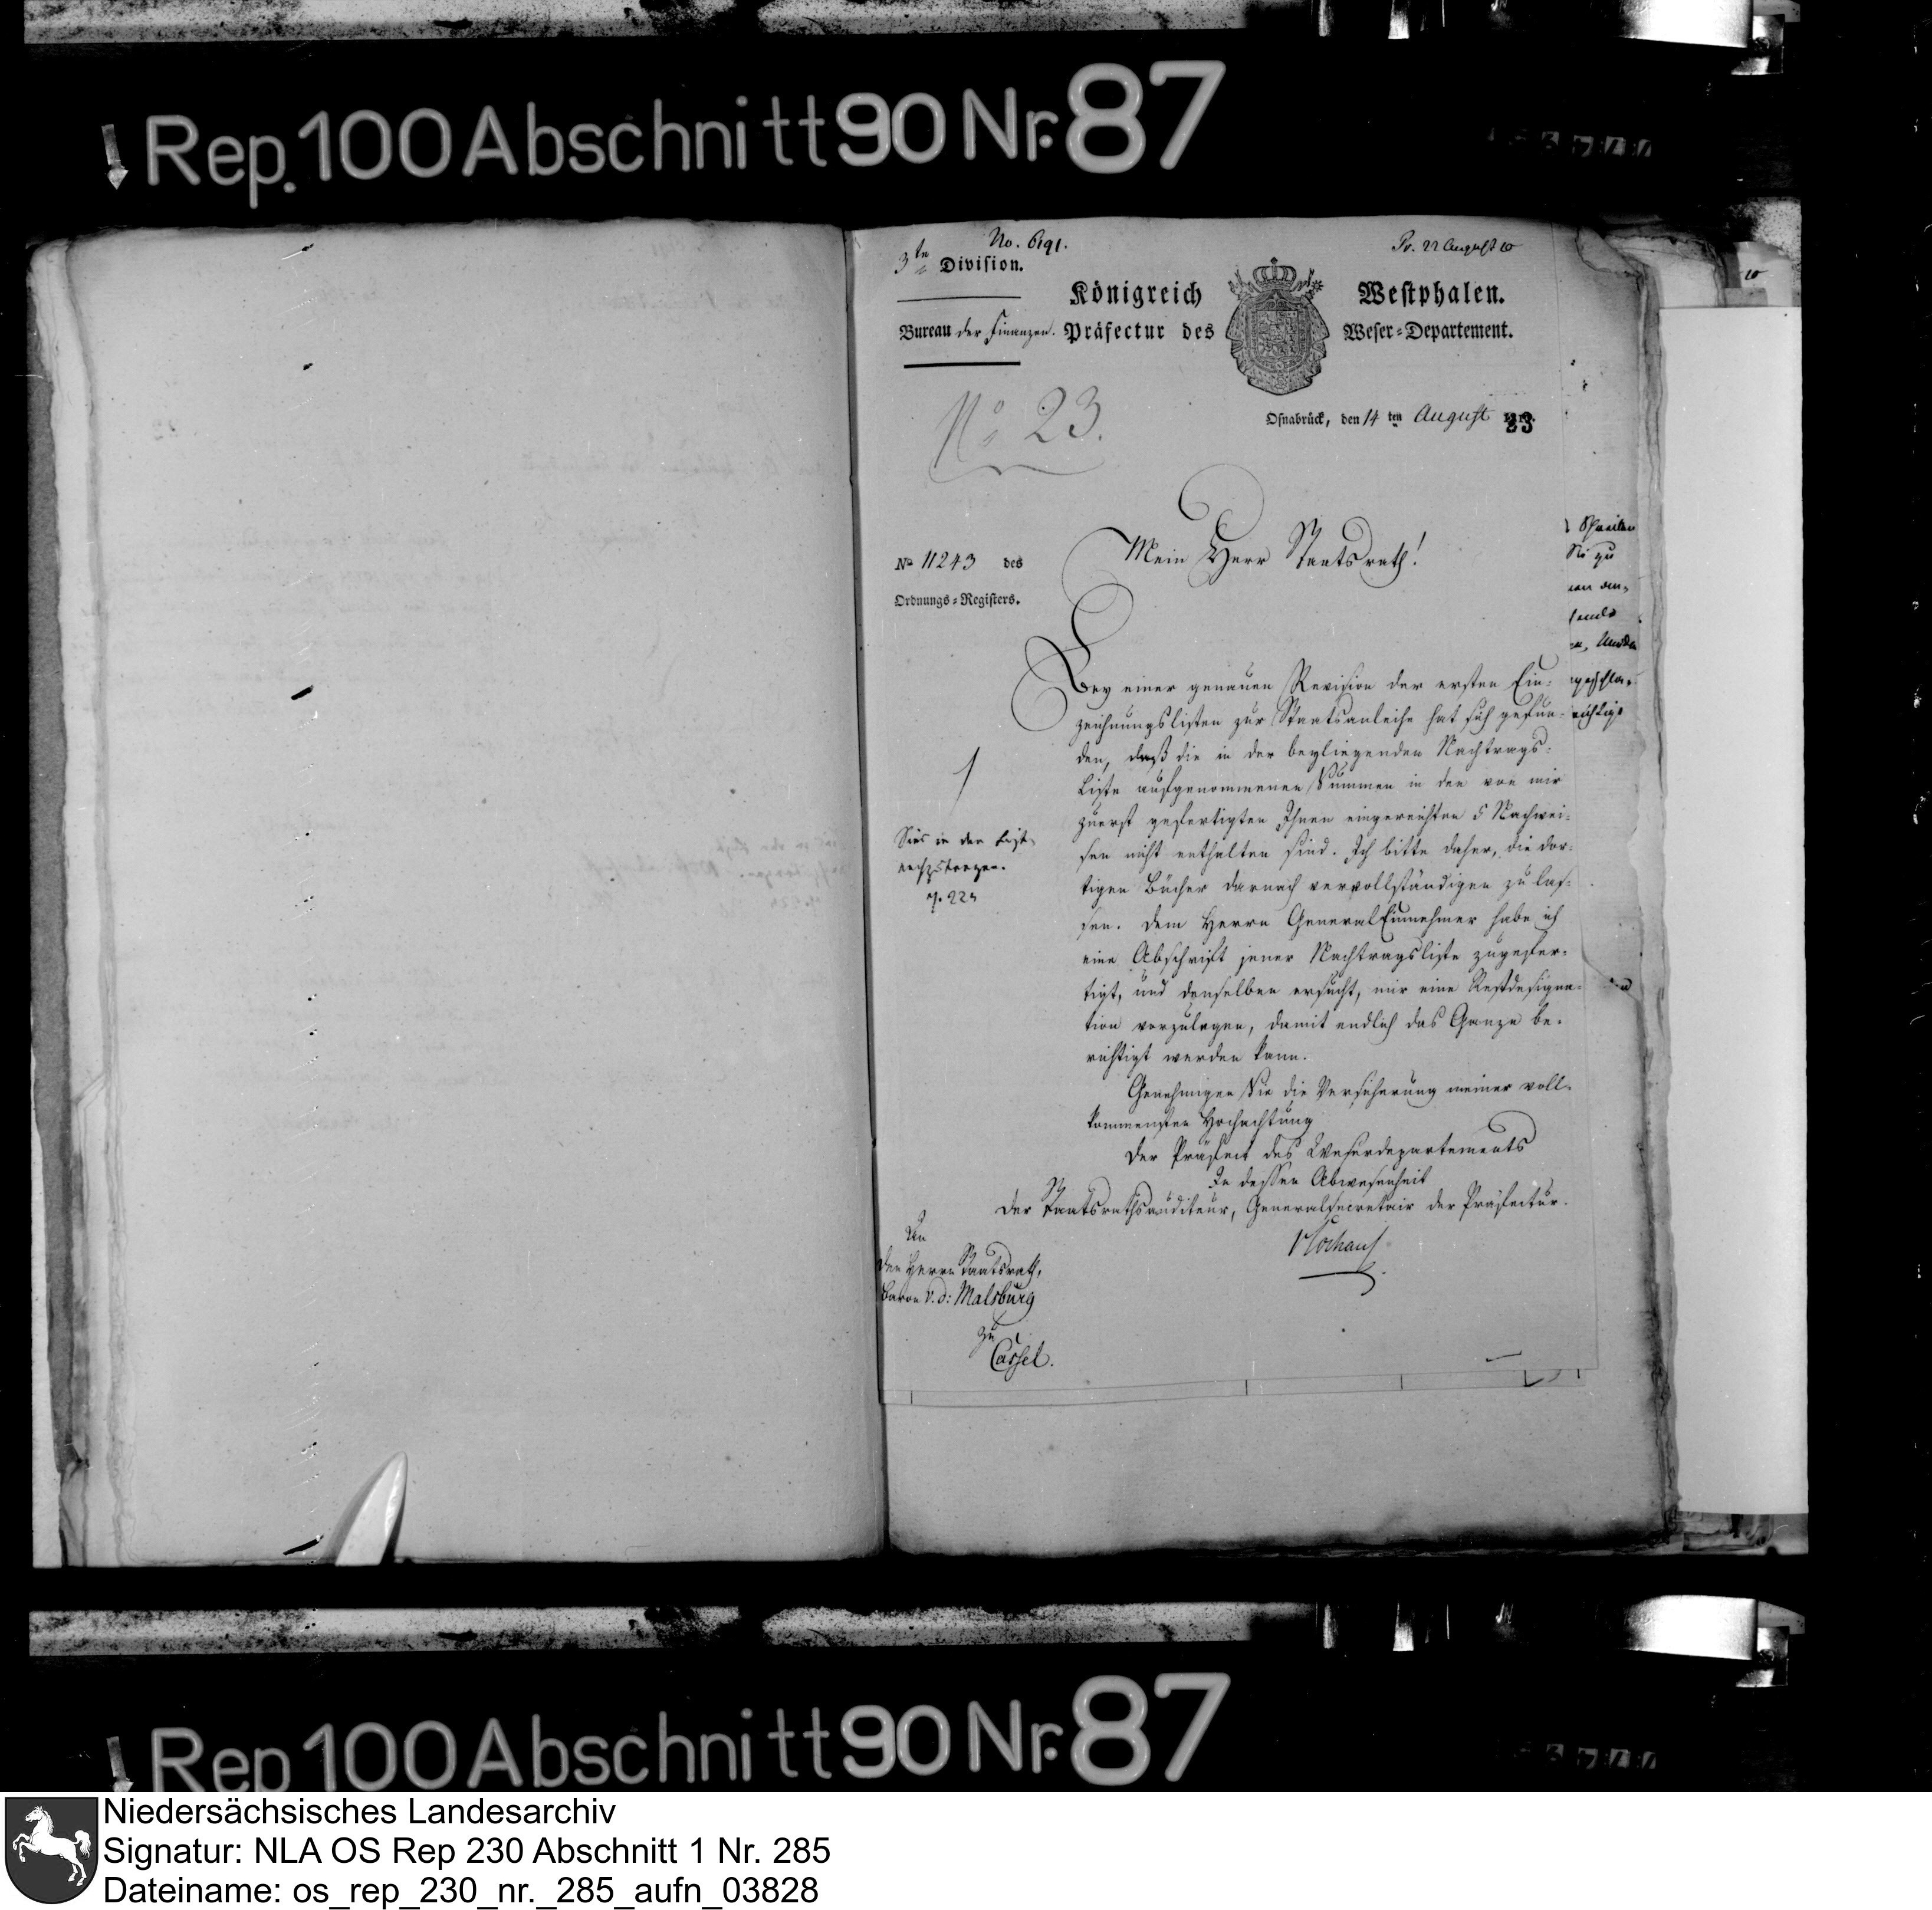 Rep. 100 Abschnitt 90 Nr. 87
No. 6191.
Pr. 22 August 10
3te Division.
Königreich Westphalen.
Bureau der Finanzen. Präfectur des Weser-Departement.
No 23.
Osnabrück, den 14 ten August
23
Mein Herr Staatsrath!
No 11243 des
Ordnungs-Registers.
Bey einer genauen Revision der ersten Ein-
zeichnungslisten zur Staatsanleihe hat sich gefun-
den, daß die in der beyliegenden Nachtrags-
Liste aufgenommenen Summen in den von mir
zuerst gefertigten Ihnen eingereichten 5 Nachwei-
sen nicht enthalten sind. Ich bitte daher, die dor-
tigen Bücher darnach vervollständigen zu las-
sen. Dem Herrn General Einnehmer habe ich
eine Abschrift jener Nachtragsliste zugefer-
tigt, und denselben ersucht, mir eine Restdesigna-
tion vorzulegen, damit endlich das Ganze be-
richtigt werden kann.
Genehmigen Sie die Versicherung meiner voll-
kommensten Hochachtung
Der Präfect des Weserdepartements
In dessen Abwesenheit
Der Staatsrathsauditeur, Generalsecretair der Präfectur.
in der Liste
nachzutragen.
An
den Herrn Staatsrath,
Baron v. d: Malsburg
zu
Cassel.
Rep 100 Abschnitt 90 Nr. 87
Niedersächsisches Landesarchiv
Signatur: NLA OS Rep 230 Abschnitt 1 Nr. 285
Dateiname: os_rep_230_nr._285_aufn_03828